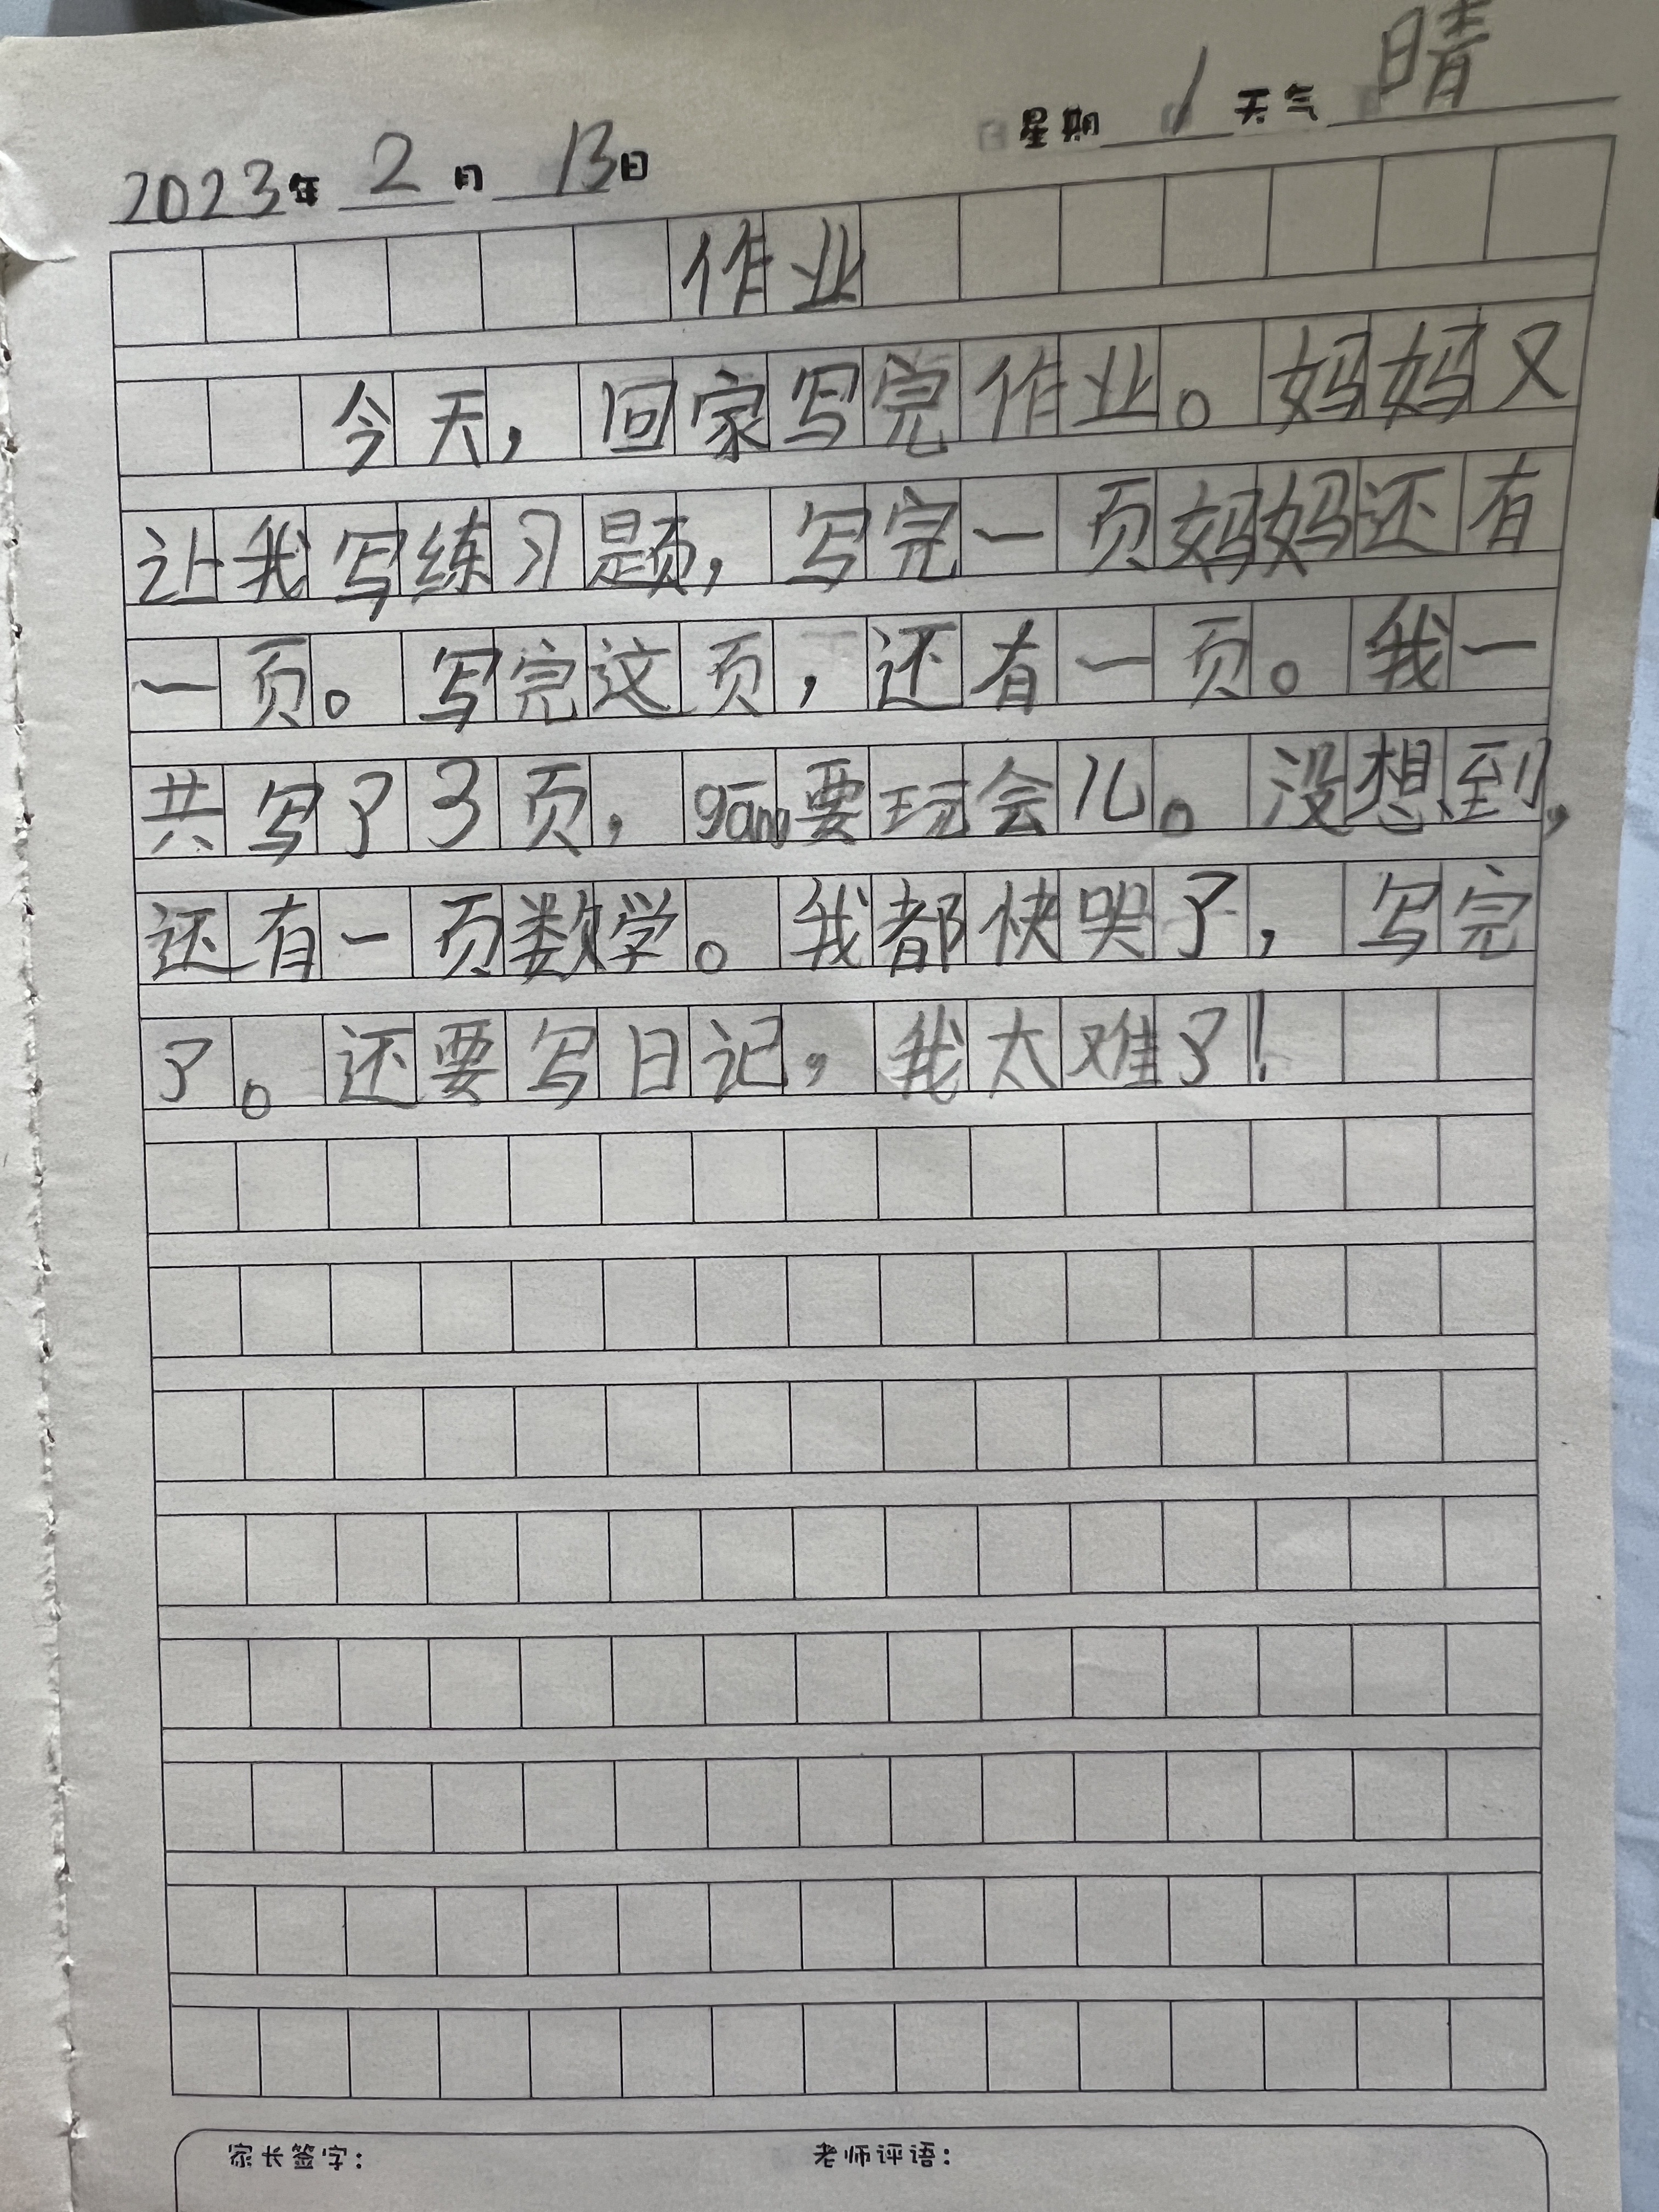 2023年 2 月 13日 星期 1 天气 晴
作业
今天，回家写完作业。妈妈又
让我写练习题，写完一页妈妈还有
一页。写完这页，还有一页。我一
共写了3页，gāng要玩会儿。没想到，
还有一页数学。我都快哭了，写完
了。还要写日记，我太难了！
家长签字： 老师评语：